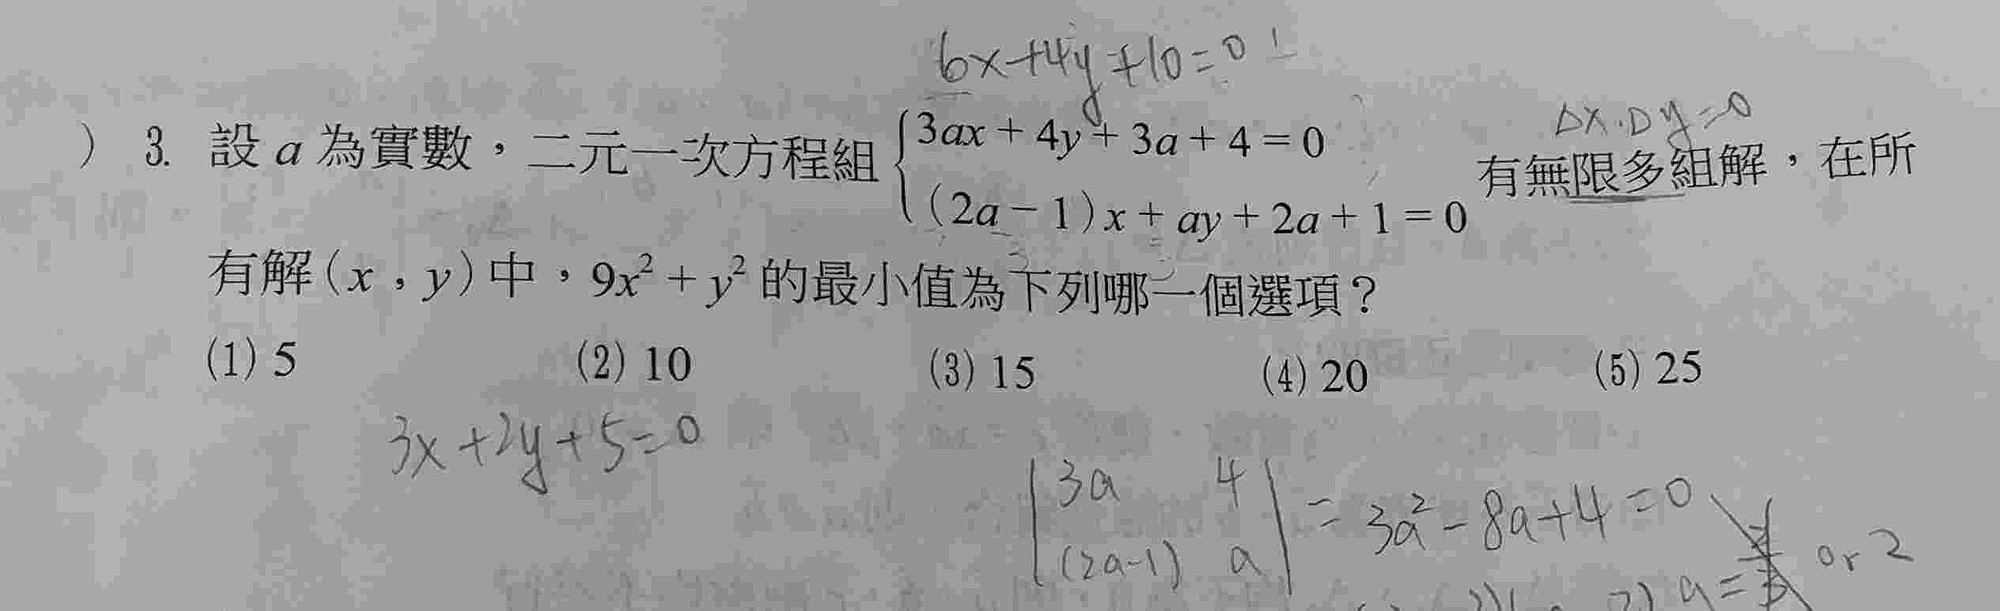 6x+4y+10=0
) 3. 設 a 為實數，二元一次方程組 {3ax + 4y + 3a + 4 = 0 有無限多組解，在所
Δx.Δy=0
(2a − 1)x + ay + 2a + 1 = 0
有解(x , y)中，9x² + y² 的最小值為下列哪一個選項？
(1) 5 (2) 10 (3) 15 (4) 20 (5) 25
3x+2y+5=0
|3a 4| = 3a²-8a+4=0
|(2a-1) a| a= or 2